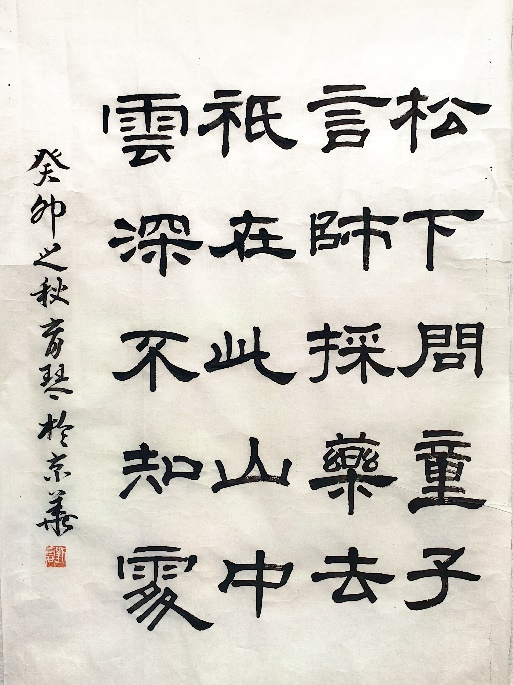 松下問童子
言師採藥去
祇在此山中
雲深不知處
癸卯之秋育琴於京華